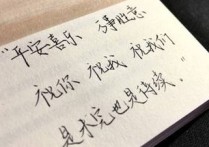 “平安喜乐 万事胜意
祝你 祝我 祝我们
是木完也是待续。”